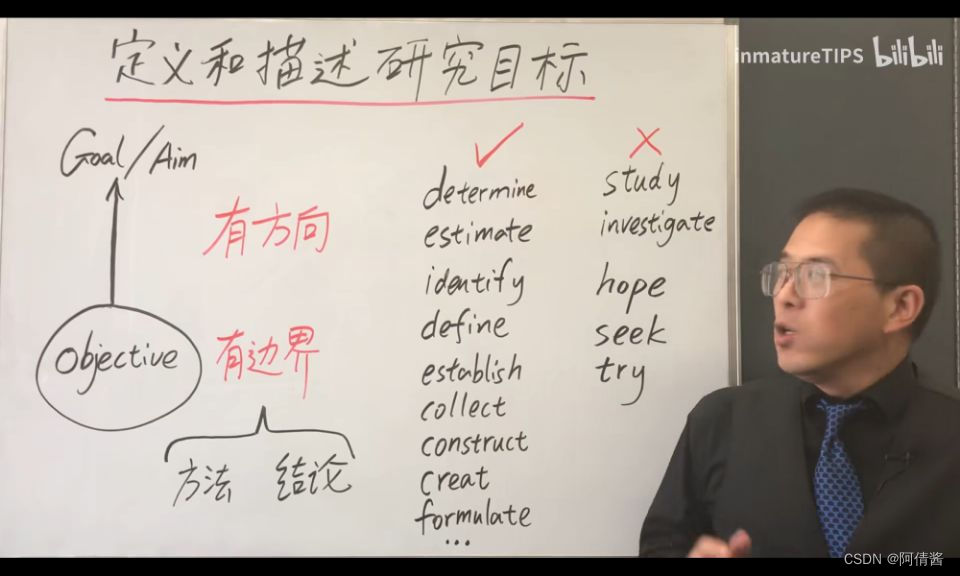 定义和描述研究目标
inmatureTIPS bilibili
Goal/Aim
有方向
Objective
有边界
方法 结论
✓
determine
estimate
identify
define
establish
collect
construct
creat
formulate
...
×
study
investigate
hope
seek
try
CSDN @阿倩酱